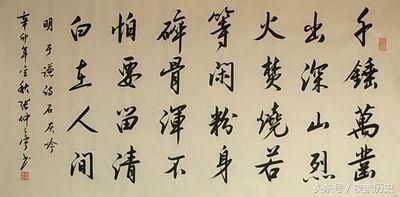 千錘萬鑿
出深山烈
火焚燒若
等闲粉身
碎骨渾不
怕要留清
白在人间
明于谦诗石灰吟
辛卯年秋张仲书
头条号 / 历史